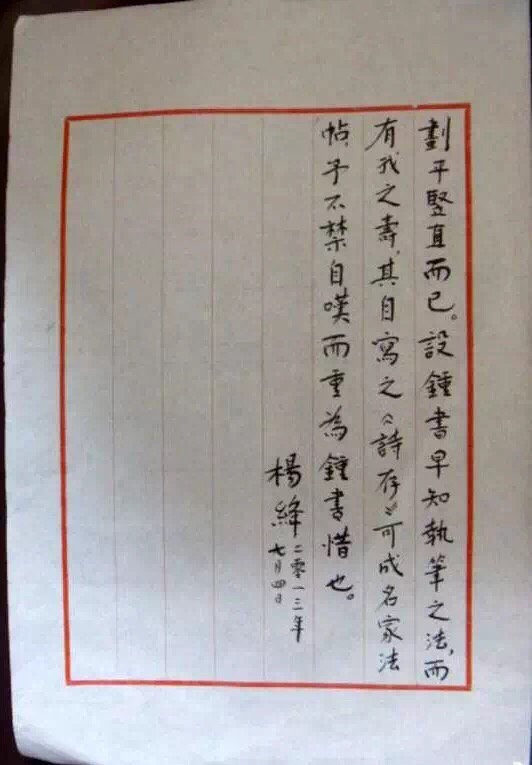 劃平豎直而已。設鍾書早知執筆之法，而
有我之壽，其自寫之《詩存》可成名家法
帖，予不禁自嘆而重為鍾書惜也。
楊絳二零一三年
七月四日